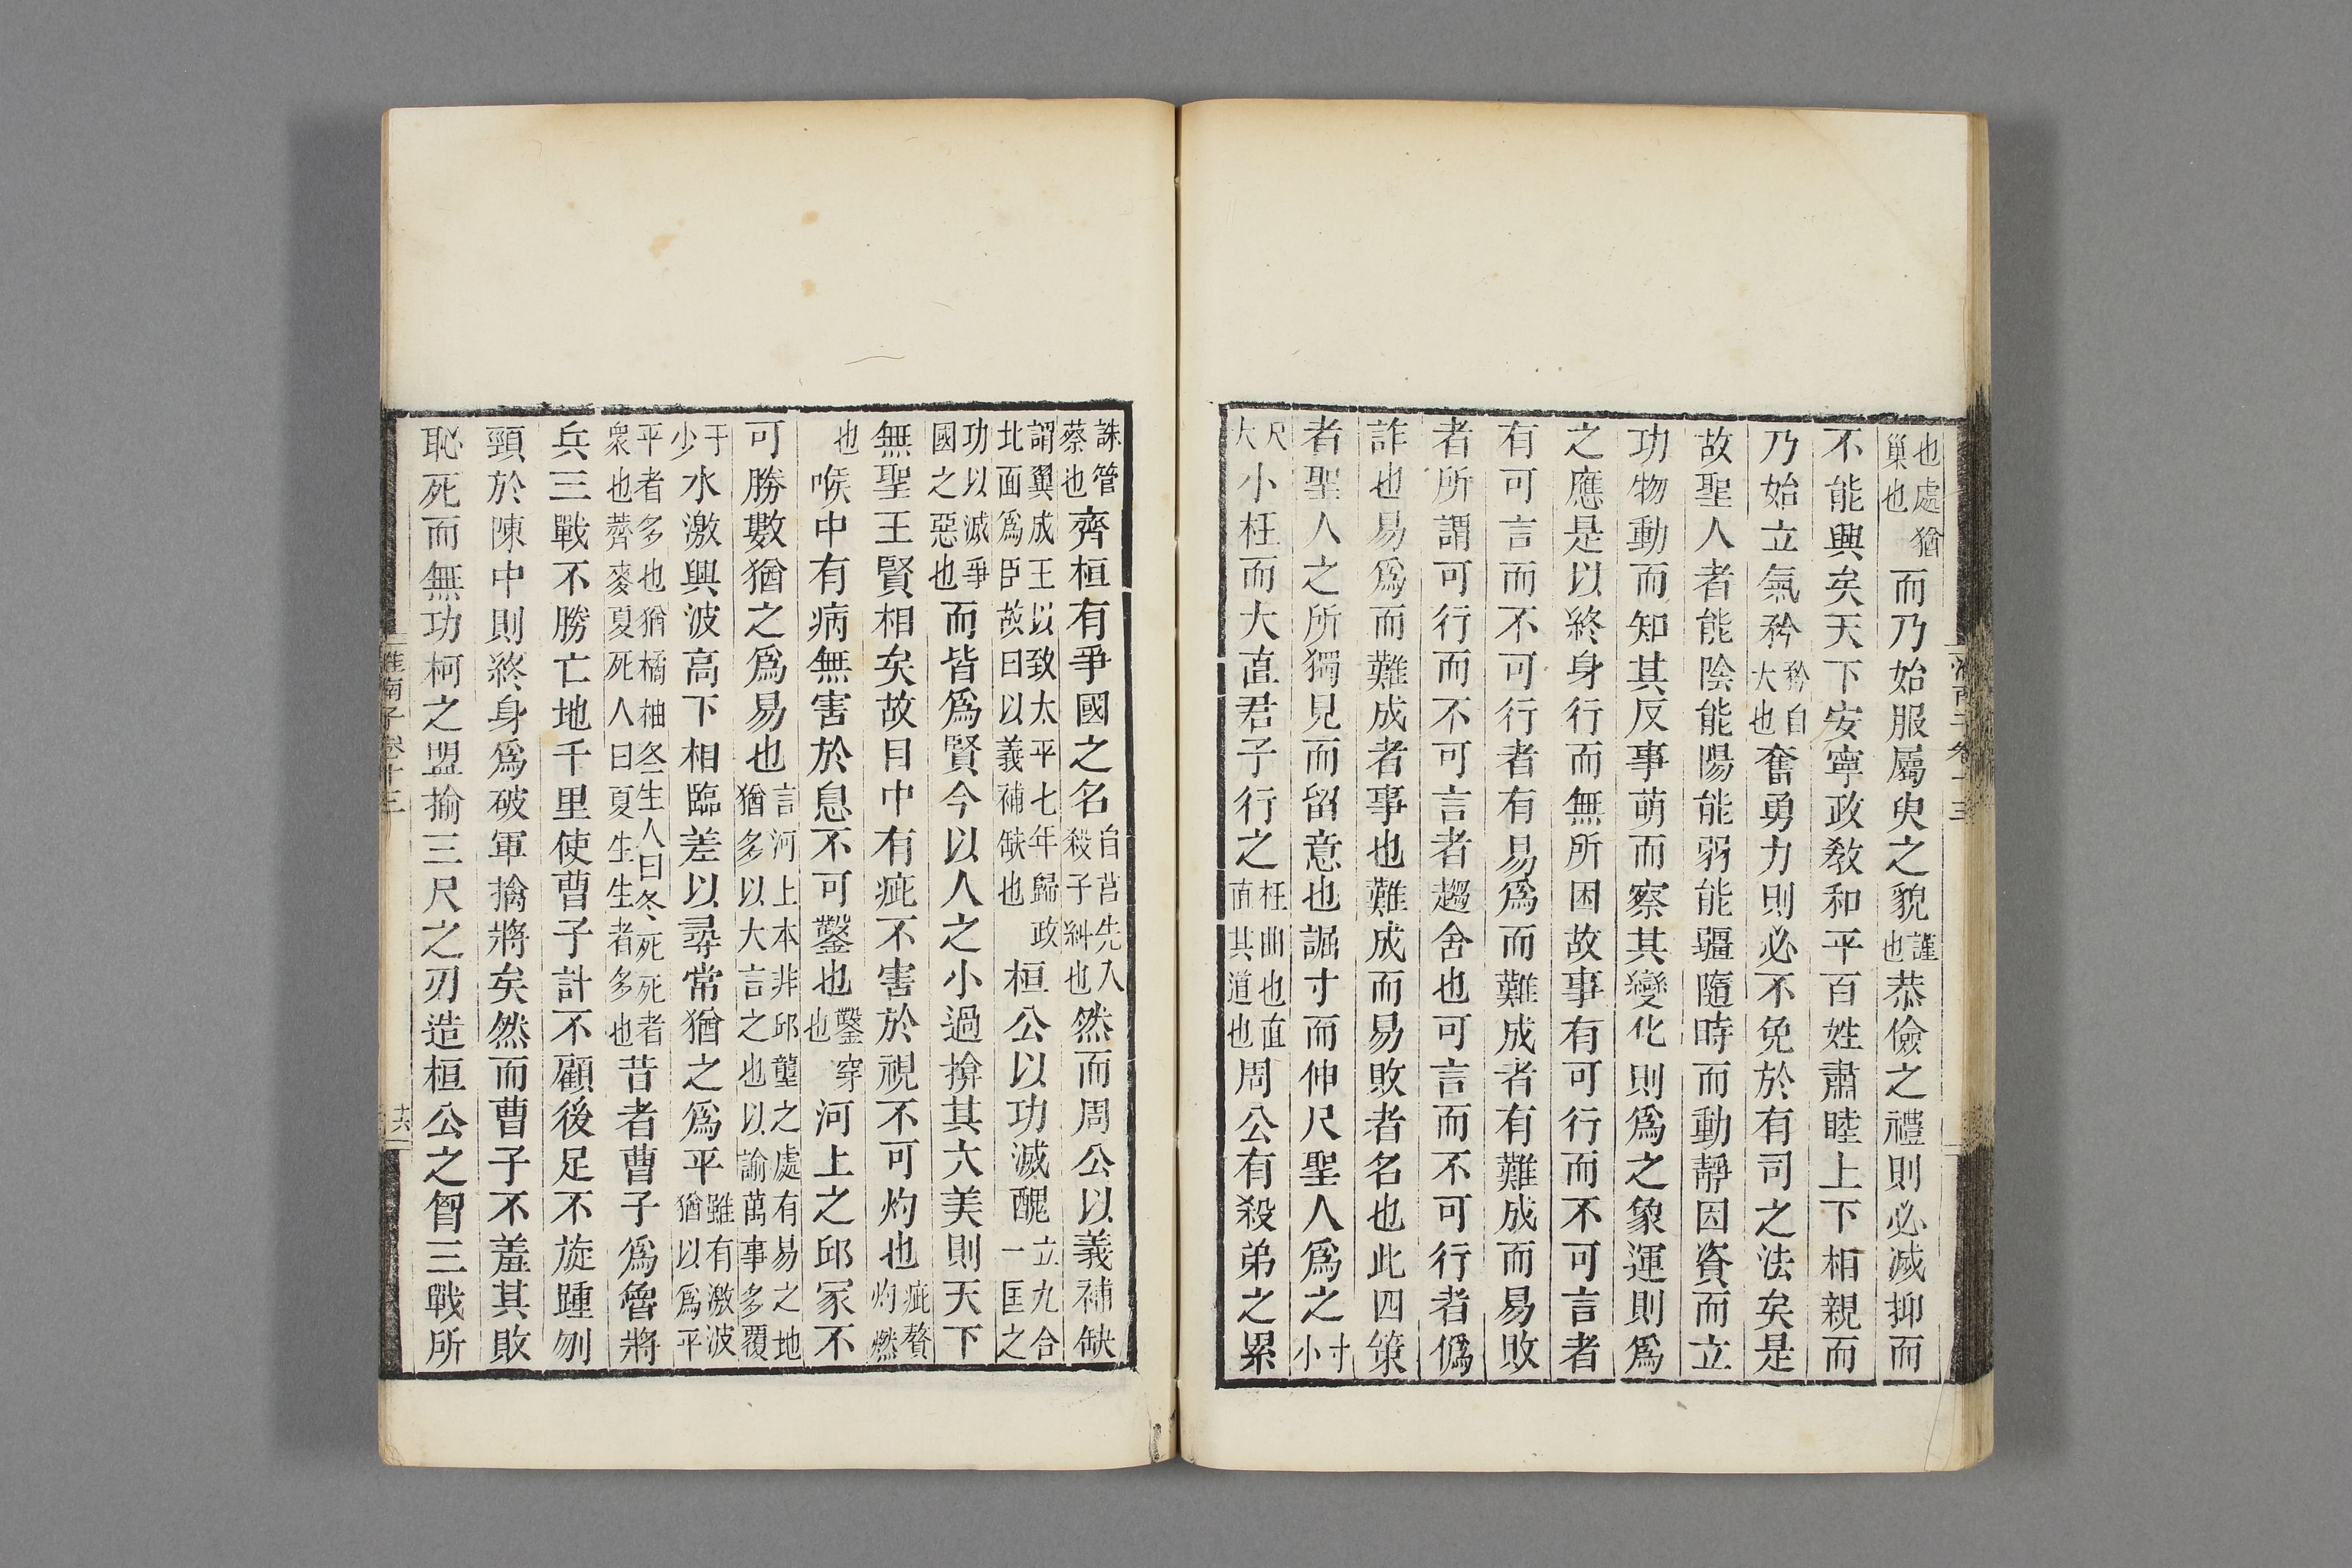 淮南子卷十三
也處猶
巢也
而乃始服屬臾之貌
謹
也
恭儉之禮則必滅抑而
不能興矣天下安寧政教和平百姓肅睦上下相親而
乃始立氣矜
矜自
大也
奮勇力則必不免於有司之法矣是
故聖人者能陰能陽能弱能彊隨時而動靜因資而立
功物動而知其反事萌而察其變化則爲之象運則爲
之應是以終身行而無所困故事有可行而不可言者
有可言而不可行者有易爲而難成者有難成而易敗
者所謂可行而不可言者趨舍也可言而不可行者僞
詐也易爲而難成者事也難成而易敗者名也此四策
者聖人之所獨見而留意也誳寸而伸尺聖人爲之
寸
小
尺
大
小枉而大直君子行之
枉曲也直
直其道也
周公有殺弟之累
誅管
蔡也
齊桓有爭國之名
自莒先入
殺子糾也
然而周公以義補缺
謂翼成王以致太平七年歸政
北面爲臣故曰以義補缺也
桓公以功滅醜
立九合
一匡之
功以滅爭
國之惡也
而皆爲賢今以人之小過揜其大美則天下
無聖王賢相矣故目中有疵不害於視不可灼也
疵贅
灼燃
也
喉中有病無害於息不可鑿也
鑿穿
也
河上之邱冢不
可勝數猶之爲易也
言河上本非邱壟之處有易之地
猶多以大言之也以諭萬事多覆
于
少
水激興波高下相臨差以尋常猶之爲平
雖有激波
猶以爲平
平者多也猶橘柚冬生人曰冬死死者
衆也薺麥夏死人曰夏生生者多也
昔者曹子爲魯將
兵三戰不勝亡地千里使曹子計不顧後足不旋踵刎
頸於陳中則終身爲破軍擒將矣然而曹子不羞其敗
恥死而無功柯之盟揄三尺之刃造桓公之胷三戰所
淮南子卷十三
十六